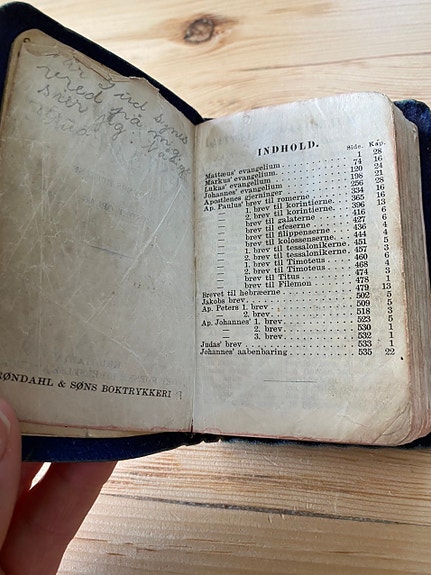 vred på mig
RØNDAHL & SØNS BOKTRYKKERI
INDHOLD.
Side. Kap.
Mattæus' evangelium 1 28
Markus' evangelium 74 16
Lukas' evangelium 120 24
Johannes' evangelium 198 21
Apostlenes gjerninger 256 28
Ap. Paulus' brev til romerne 334 16
— 1. brev til korintierne 365 16
— 2. brev til korintierne 396 13
— brev til galaterne 416 6
— brev til efeserne 427 6
— brev til filippenserne 436 4
— brev til kolossenserne 444 4
— 1. brev til tessalonikerne 451 5
— 2. brev til tessalonikerne 457 3
— 1. brev til Timoteus 460 6
— 2. brev til Timoteus 468 4
— brev til Titus 474 3
— brev til Filemon 478 1
Brevet til hebræerne 479 13
Jakobs brev 502 5
Ap. Peters 1. brev 509 5
— 2. brev 518 3
Ap. Johannes' 1. brev 523 5
— 2. brev 530 1
— 3. brev 532 1
Judas' brev 533 1
Johannes' aabenbaring 535 22